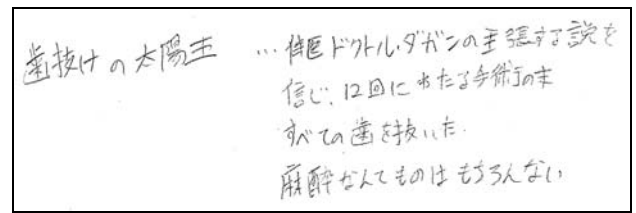 歯抜けの太陽王 …侍医ドクトル・ダガンの主張する説を
信じ、12回にわたる手術の末
すべての歯を抜いた.
麻酔なんてものはもちろんない